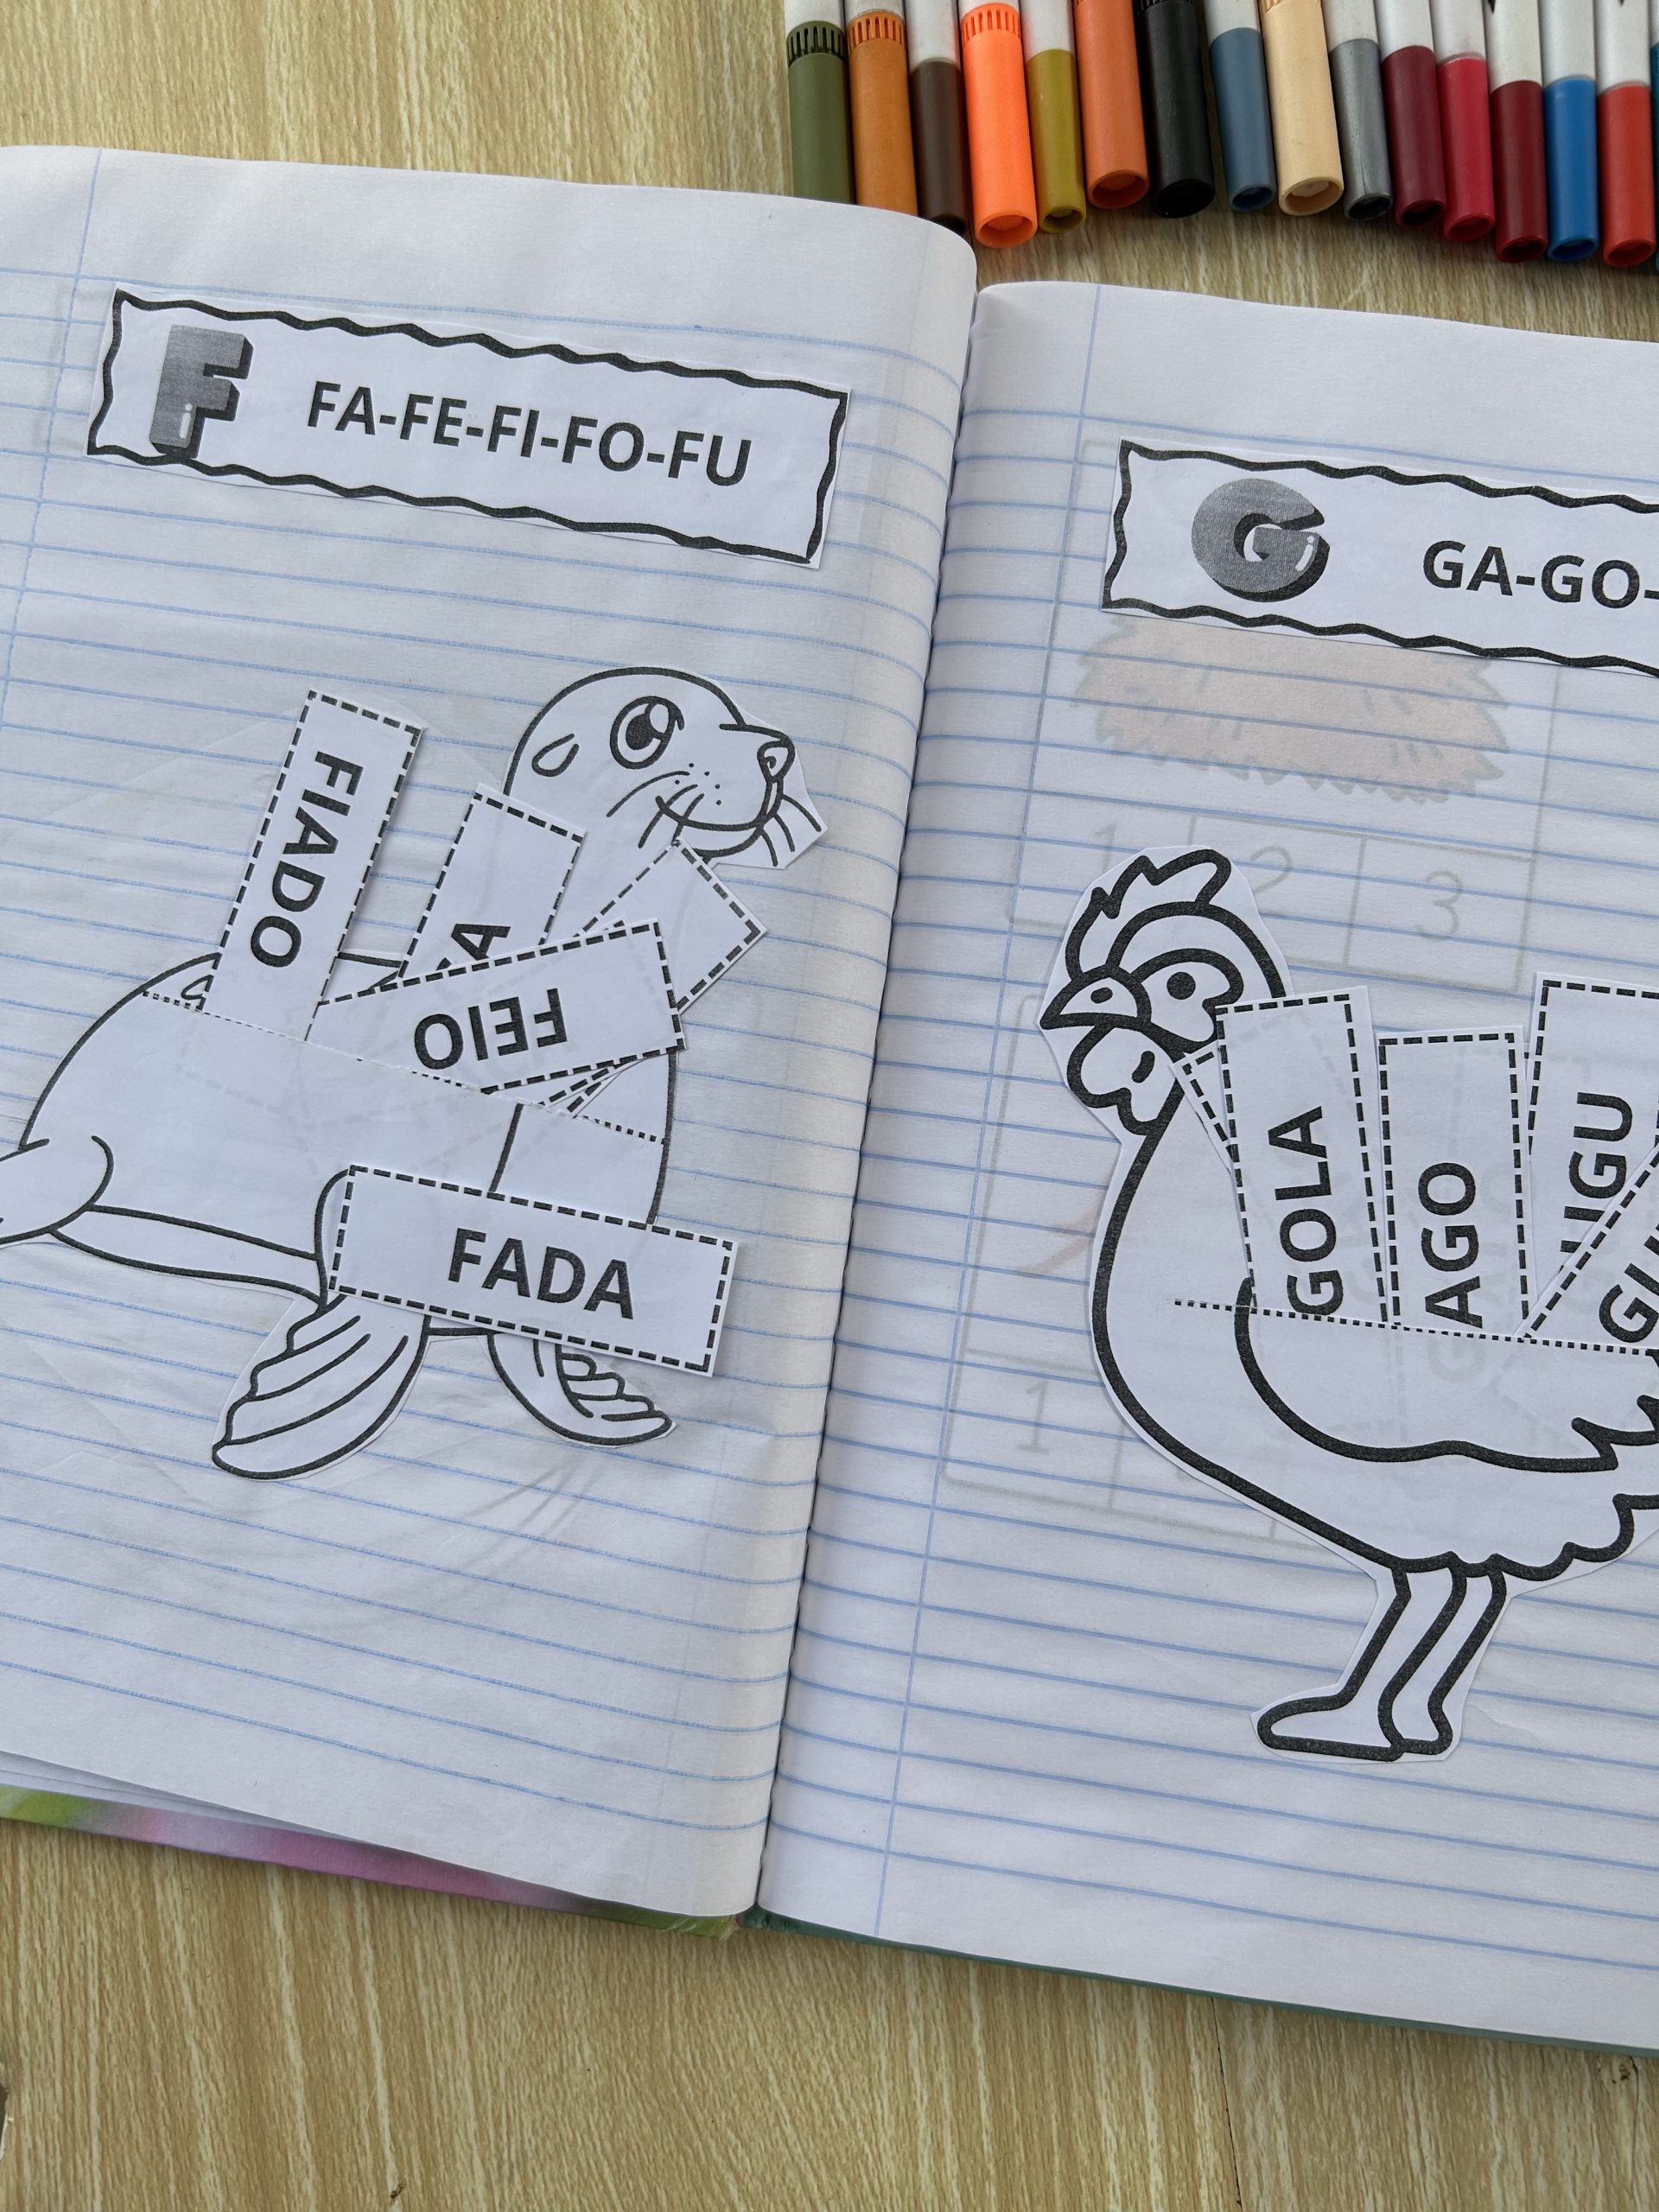 F FA-FE-FI-FO-FU
FIADO
FEIO
FADA
G GA-GO-
GOLA
AGO
1 2 3
1